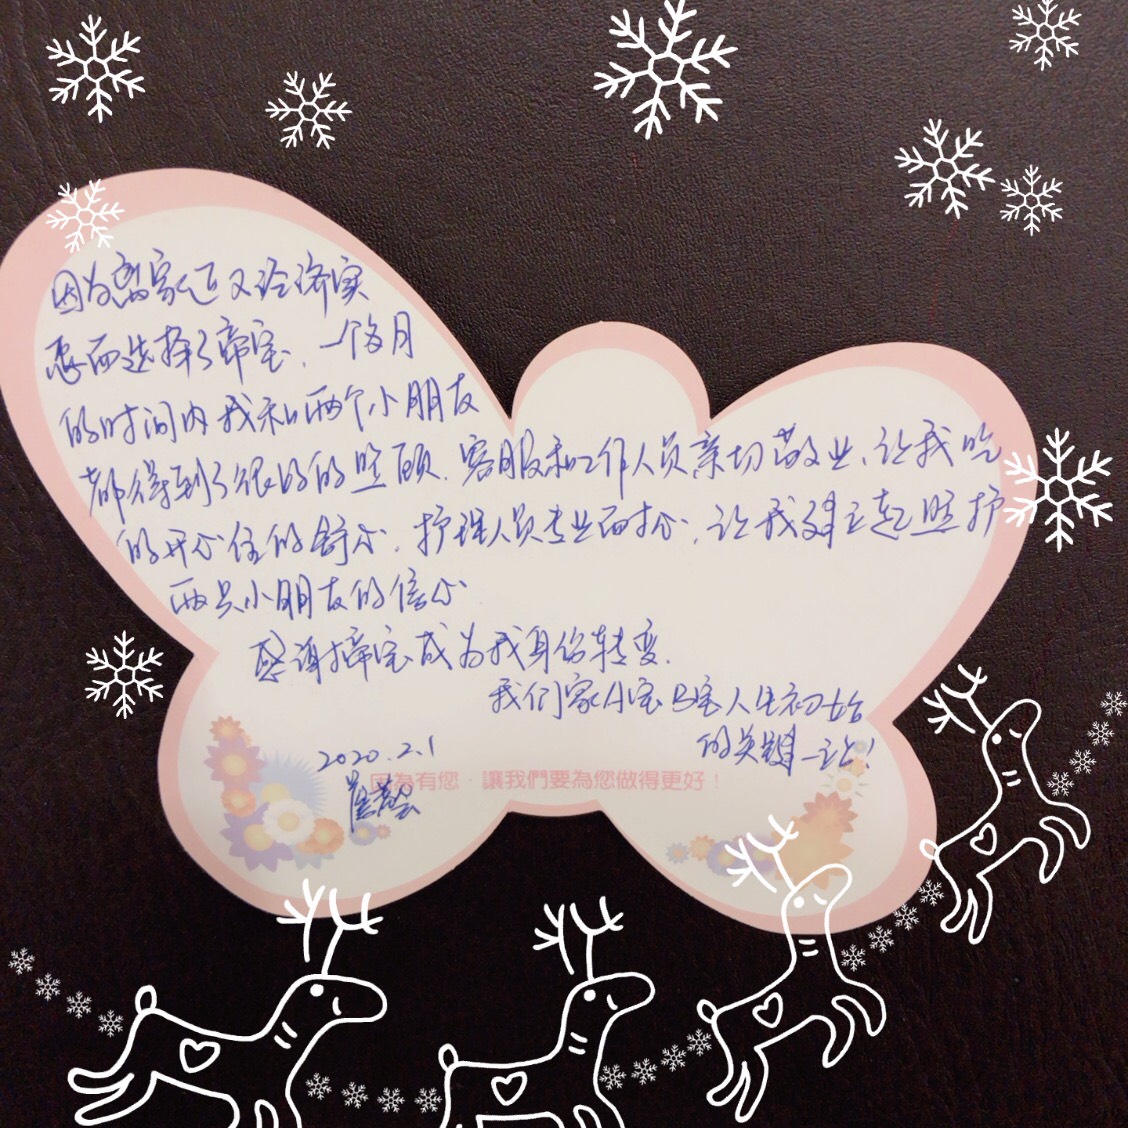 因为离家近又经济实
惠而选择了帝宝，一个多月
的时间内我和两个小朋友
都得到了很好的照顾，客服和工作人员亲切敬业，让我吃
的开心住的舒心，护理人员专业而耐心，让我建立起照护
两只小朋友的信心
感谢帝宝成为我身份转变，
我们家A宝B宝人生初始
的关键一站！
2020.2.1
因為有您，讓我們要為您做得更好！